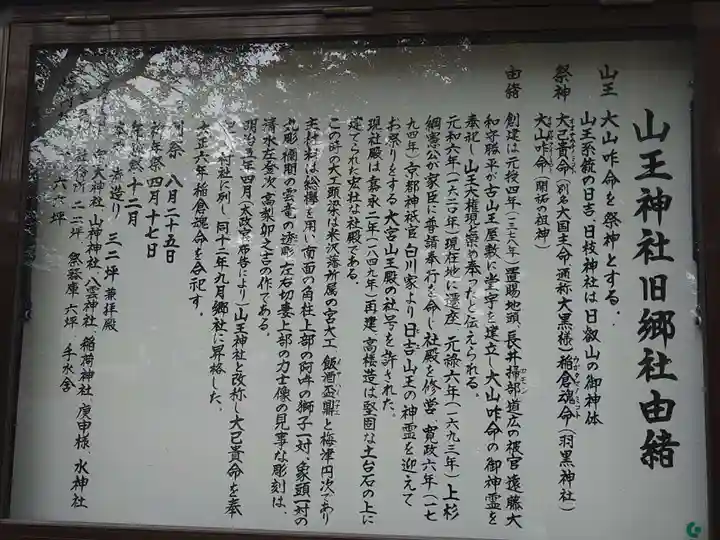 山王神社旧郷社由緒
山王 大山咋命を祭神とする.
山王系統の日吉、日枝神社は日叡山の御神体
祭神 大己貴命(別名大国主命・通称大黒様)稲倉魂命(羽黒神社)
大山咋命(開拓の祖神)
由緒 創建は元授四年(一三七八年)置賜地頭、長井掃部道広の禰宜遠藤大
和守勝平が古山王屋敷に堂宇を建立し大山咋命の御神霊を
奉祀し山王大権現と崇め奉ったと伝えられる。
元和六年(一六二〇年)現在地に遷座 元禄六年(一六九三年)上杉
綱憲公が家臣に普請奉行を命じ社殿を修営、寛政六年(一七
九四年)京都神祇官白川家より日吉山王の神霊を迎えて
お祭りをする 大宮山王殿の社号を許された。
現社殿は嘉永二年(一八四九年)再建 高楼造は堅固な土台石の上に
建てられた宏壮な社殿である。
この時の大工頭梁は米沢藩所属の宮大工 飯酒盃鼎と梅津円次であり
主柱材は総欅を用い前面の角柱上部の阿吽の獅子一対、象頭一対の
丸彫欄間の雲竜の透彫 左右切妻上部の力士像の見事な彫刻は、
清水左登次 高梨卯之吉の作である。
明治 年四月(太政官布告により)山王神社と改称し大己貴命を奉
村社に列し同十二年九月郷社に昇格した。
大正六年稲倉魂命を合祀す。
例祭 八月二十五日
祈年祭 四月十七日
十二月
造り 三二坪 兼拝殿
大神社 山神神社 八雲神社、稲荷神社、庚申様、水神社
社務所 二二坪、祭器庫 六坪、手水舎
六六坪